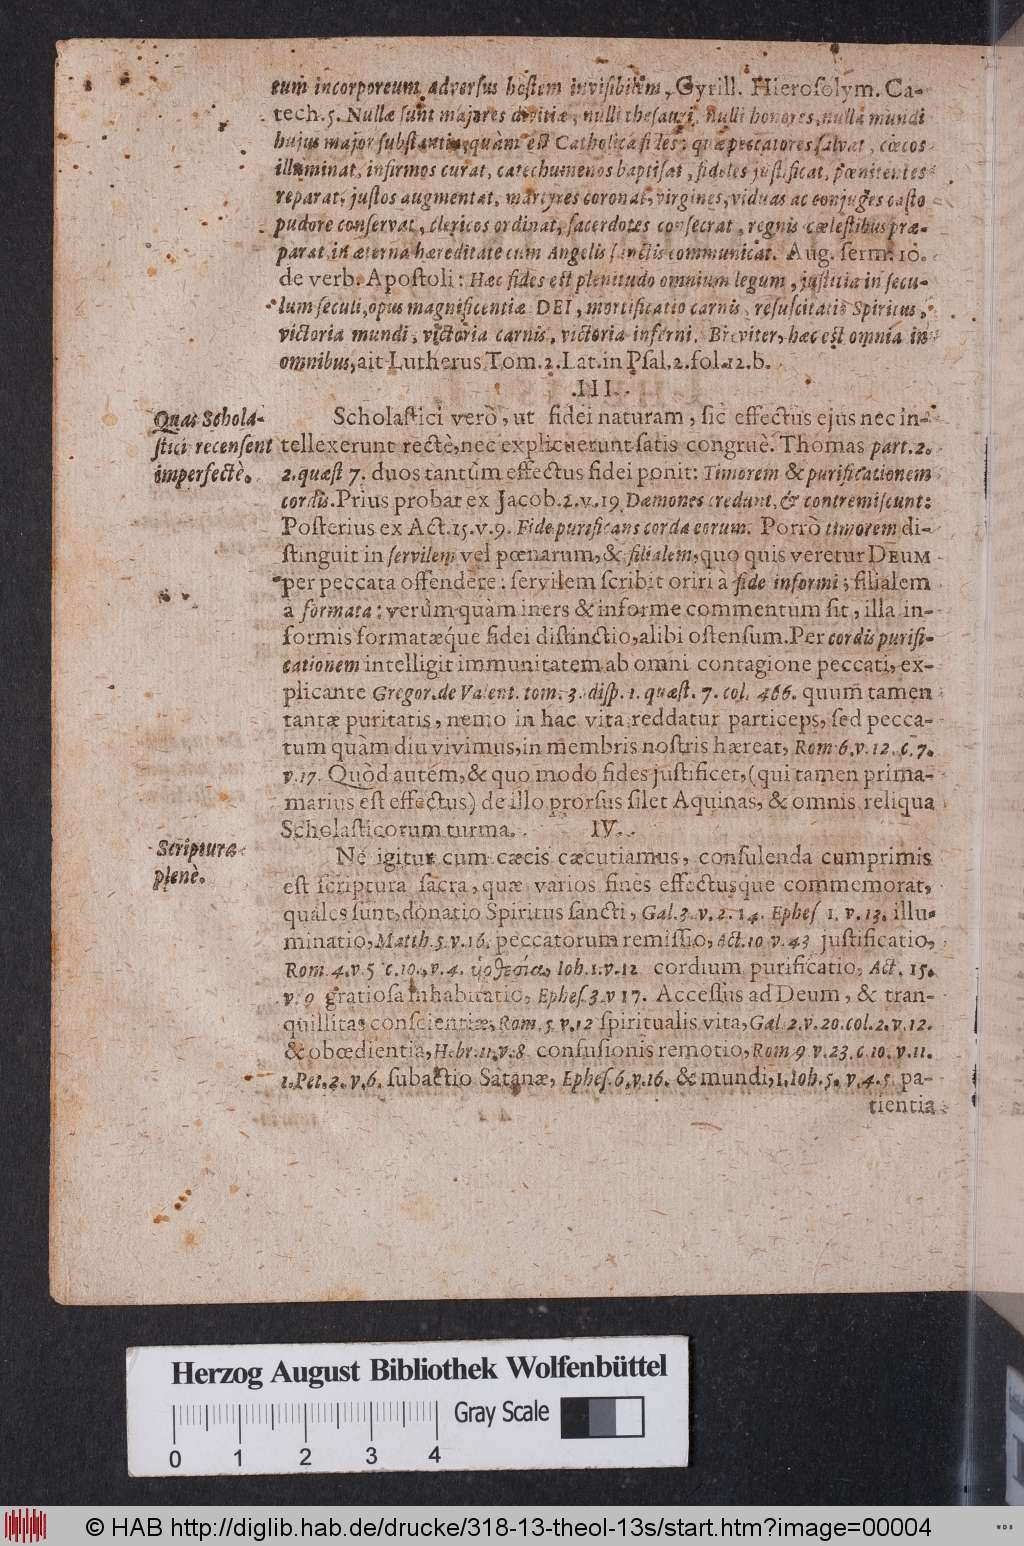 eum incorporeum adversus hostem invisibilem, Cyrill. Hierosolym. Ca-
tech. 5. Nullæ sunt majores divitiæ, nulli thesauri, nulli honores, nulla mundi
hujus major substantia, quàm est Catholica fides: quæ peccatores salvat, cœcos
illuminat, infirmos curat, catechumenos baptisat, fideles justificat, pœnitentes
reparat, justos augmentat, martyres coronat, virgines, viduas ac conjuges casto
pudore conservat, clericos ordinat, sacerdotes consecrat, regnis cœlestibus præ-
parat, in æterna hæreditate cum Angelis sanctis communicat. Aug. serm. 10.
de verb. Apostoli: Hæc fides est plenitudo omnium legum, justitia in secu-
lum seculi, opus magnificentiæ DEI, mortificatio carnis, resuscitatio Spiritus,
victoria mundi, victoria carnis, victoria inferni. Breviter, hæc est omnia in
omnibus, ait Lutherus Tom. 2. Lat. in Psal. 2. fol. 12. b.
III.
Quas Schola-
stici recensent
imperfectè.
Scholastici verò, ut fidei naturam, sic effectus ejus nec in-
tellexerunt rectè, nec explicuerunt satis congruè. Thomas part. 2.
2. quæst 7. duos tantùm effectus fidei ponit: Timorem & purificationem
cordis. Prius probat ex Jacob. 2. v. 19 Dæmones credunt, & contremiscunt:
Posterius ex Act. 15. v. 9. Fide purificans corda eorum. Porrò timorem di-
stinguit in servilem vel pœnarum, & filialem, quo quis veretur DEUM
per peccata offendere: servilem scribit oriri à fide informi; filialem
à formata: verùm quàm iners & informe commentum sit, illa in-
formis formatæque fidei distinctio, alibi ostensum. Per cordis purifi-
cationem intelligit immunitatem ab omni contagione peccati, ex-
plicante Gregor. de Valent. tom. 3. disp. 1. quæst. 7. col. 466. quum tamen
tantæ puritatis, nemo in hac vita reddatur particeps, sed pecca-
tum quàm diu vivimus, in membris nostris hæreat, Rom 6. v. 12. c. 7.
v. 17. Quòd autem, & quo modo fides justificet, (qui tamen prima-
marius est effectus) de illo prorsus silet Aquinas, & omnis reliqua
Scholasticorum turma.
IV.
Scriptura
plenè.
Ne igitur cum cæcis cæcutiamus, consulenda cumprimis
est scriptura sacra, quæ varios fines effectusque commemorat,
quales sunt, donatio Spiritus sancti, Gal. 3. v. 2. 14. Ephes 1. v. 13. illu-
minatio, Matth. 5. v. 16. peccatorum remissio, Act. 10 v. 43 justificatio,
Rom 4. v. 5 c. 10. v. 4. Ioh. 1. v. 12 cordium purificatio, Act. 15.
v. 9 gratiosa inhabitatio, Ephes. 3. v 17. Accessus ad Deum, & tran-
quillitas conscientiæ, Rom. 5 v. 12 spiritualis vita, Gal 2. v. 20. col. 2. v. 12.
& obœdientia, Hebr. 11. v. 8. confusionis remotio, Rom 9 v. 23. c. 10. v. 11.
1. Pet. 2. v. 6. subactio Satanæ, Ephes. 6. v. 16. & mundi, 1. Ioh. 5. v. 4. 5. pa-
tientia
Herzog August Bibliothek Wolfenbüttel
Gray Scale
0 1 2 3 4
© HAB http://diglib.hab.de/drucke/318-13-theol-13s/start.htm?image=00004